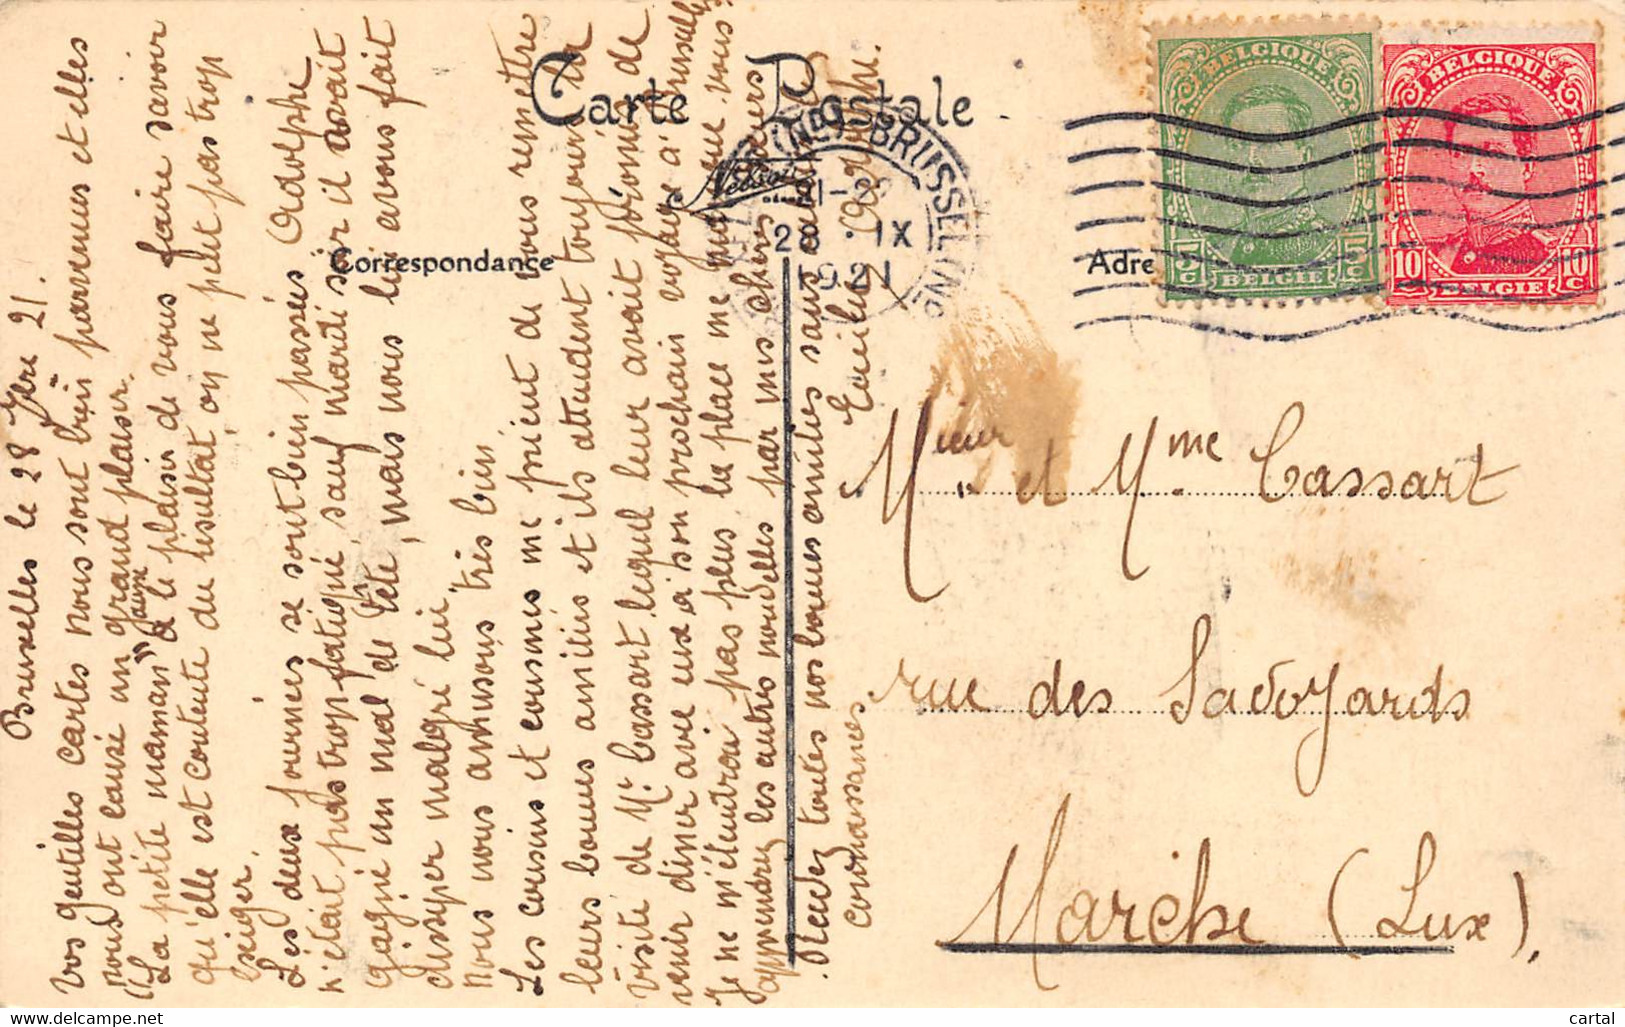 Carte Postale
Correspondance
Adre
BELGIQUE
5 C 5 C
BELGIE
BELGIQUE
10 C 10 C
BELGIE
BRUSSEL (Nd)
21-22
28 IX
1921
Bruxelles le 28 7bre 21.
Vos gentilles cartes nous sont bien parvenues et elles
nous ont causé un grand plaisir.
("La petite maman" a le plaisir de vous faire savoir
qu'elle est contente du résultat, on ne peut pas trop
exiger.
Les deux journées se sont bien passées Adolphe
n'était pas trop fatigué, sauf mardi soir il avait
gagné un mal de tête, mais nous le avons fait
dissiper malgré lui.
Nous nous amusons très bien
Les cousins et cousines me prient de vous remettre
leurs bonnes amitiés et ils attendent toujours la
visite de Mr Cassart lequel leur avait promis de
venir diner avec eux à son prochain voyage à Bruxelles
Je ne m'étendrai pas plus, la place me manque vous
apprendrez les autres nouvelles par mes chers
Recevez toutes nos bonnes amitiés sans oublier
connaissances
Emilie Adolphe.
Mieur et Mme Cassart
rue des Savoyards
Marche (Lux).
delcampe.net
cartal